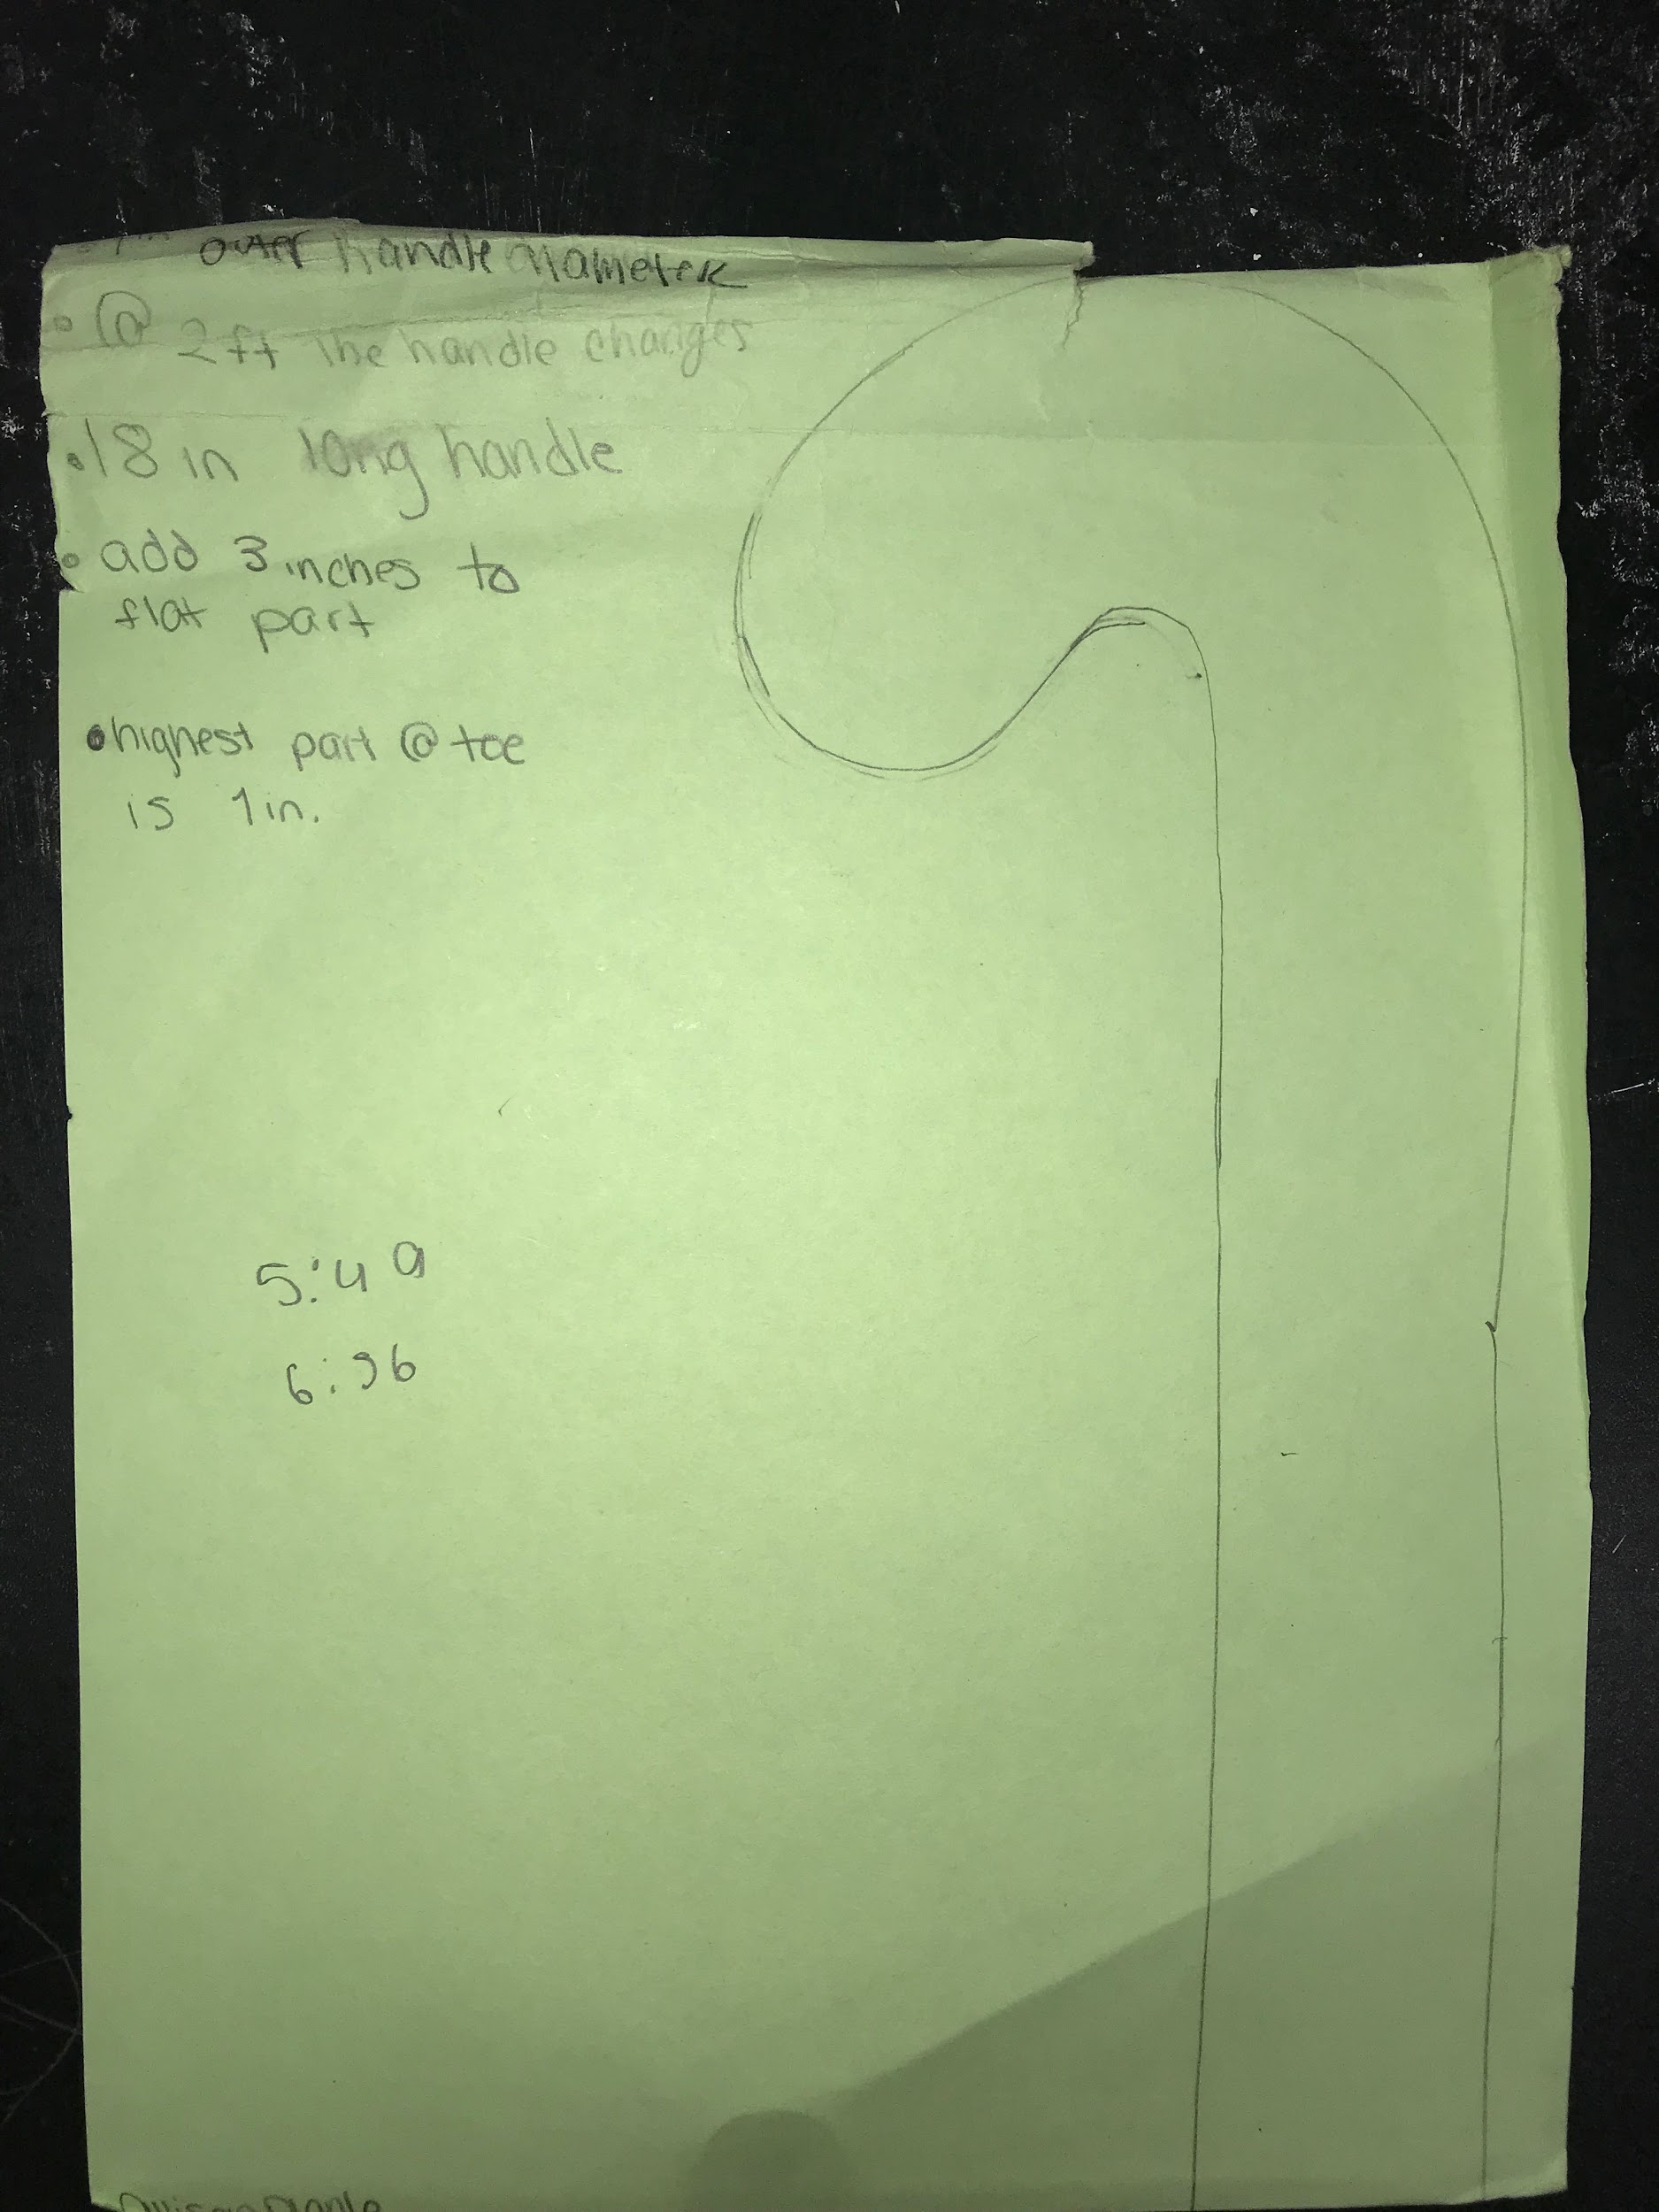 outer handle diameter
• @ 2ft the handle changes
• 18 in long handle
• add 3 inches to
flat part
• highest part @ toe
is 1in.
5:49
6:36